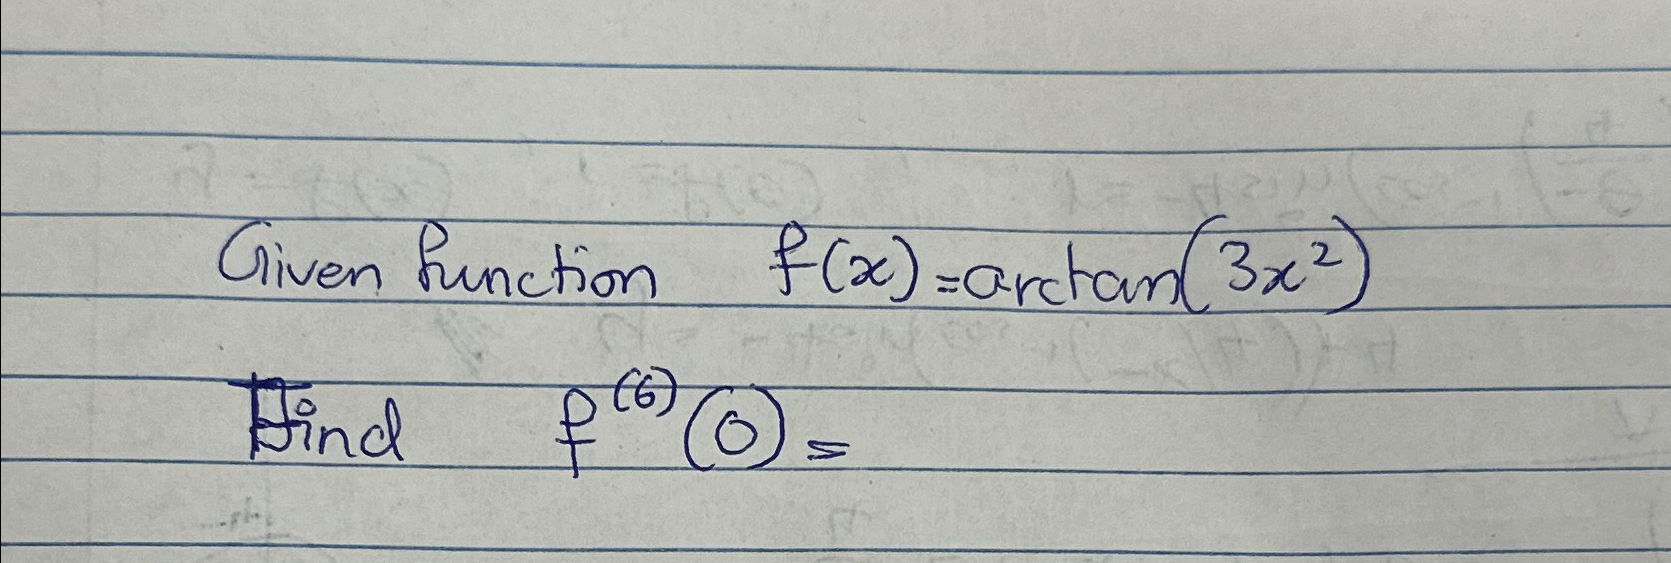 Given function f(x)=arctan(3x²)
Find f⁽⁶⁾(0)=